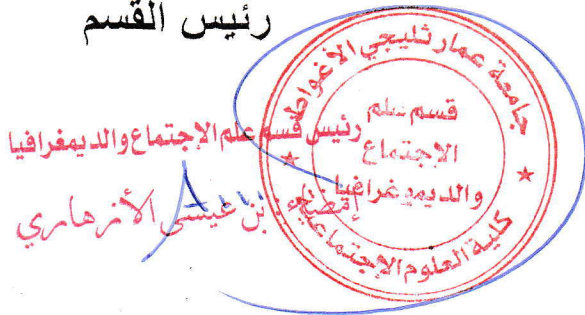 رئيس القسم
جامعة عمار ثليجي الأغواط
قسم علم
الاجتماع
والديموغرافيا
كلية العلوم الإجتماعية
رئيس قسم علم الإجتماع والديمغرافيا
إمضاء: بن عيسى الأزهاري